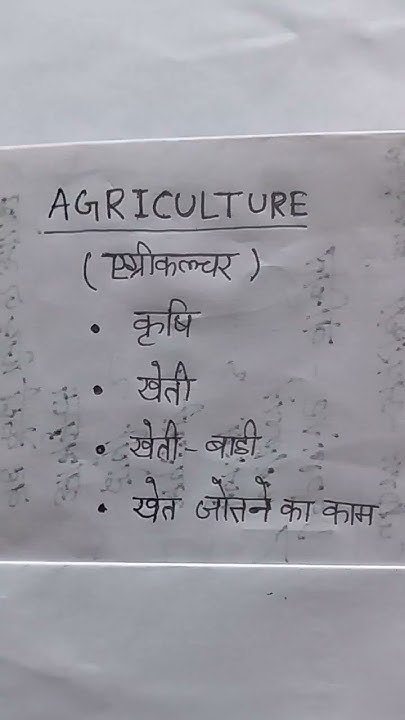 AGRICULTURE
(एग्रीकल्चर)
• कृषि
• खेती
• खेती - बाड़ी
• खेत जोतने का काम